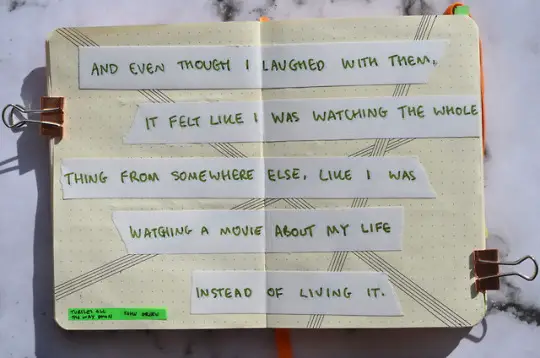 AND EVEN THOUGH I LAUGHED WITH THEM,
IT FELT LIKE I WAS WATCHING THE WHOLE
THING FROM SOMEWHERE ELSE, LIKE I WAS
WATCHING A MOVIE ABOUT MY LIFE
INSTEAD OF LIVING IT.
TURTLES ALL
THE WAY DOWN JOHN GREEN